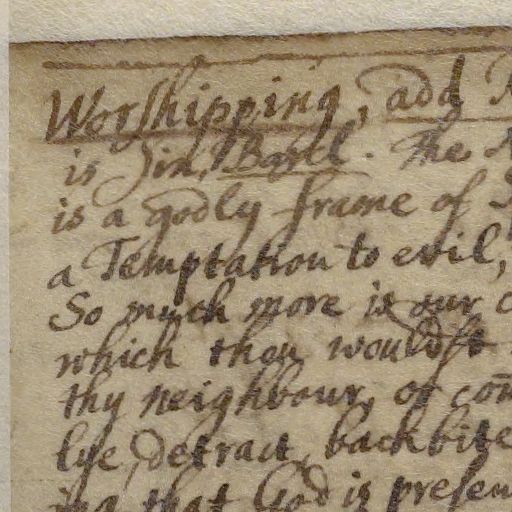 Worshipping, add
is sin, Basil. The
is a godly frame of
a Temptation to evil,
So much more is our
which thou wouldst
thy neighbour, or com̄
lye, detract, backbite
that God is presen